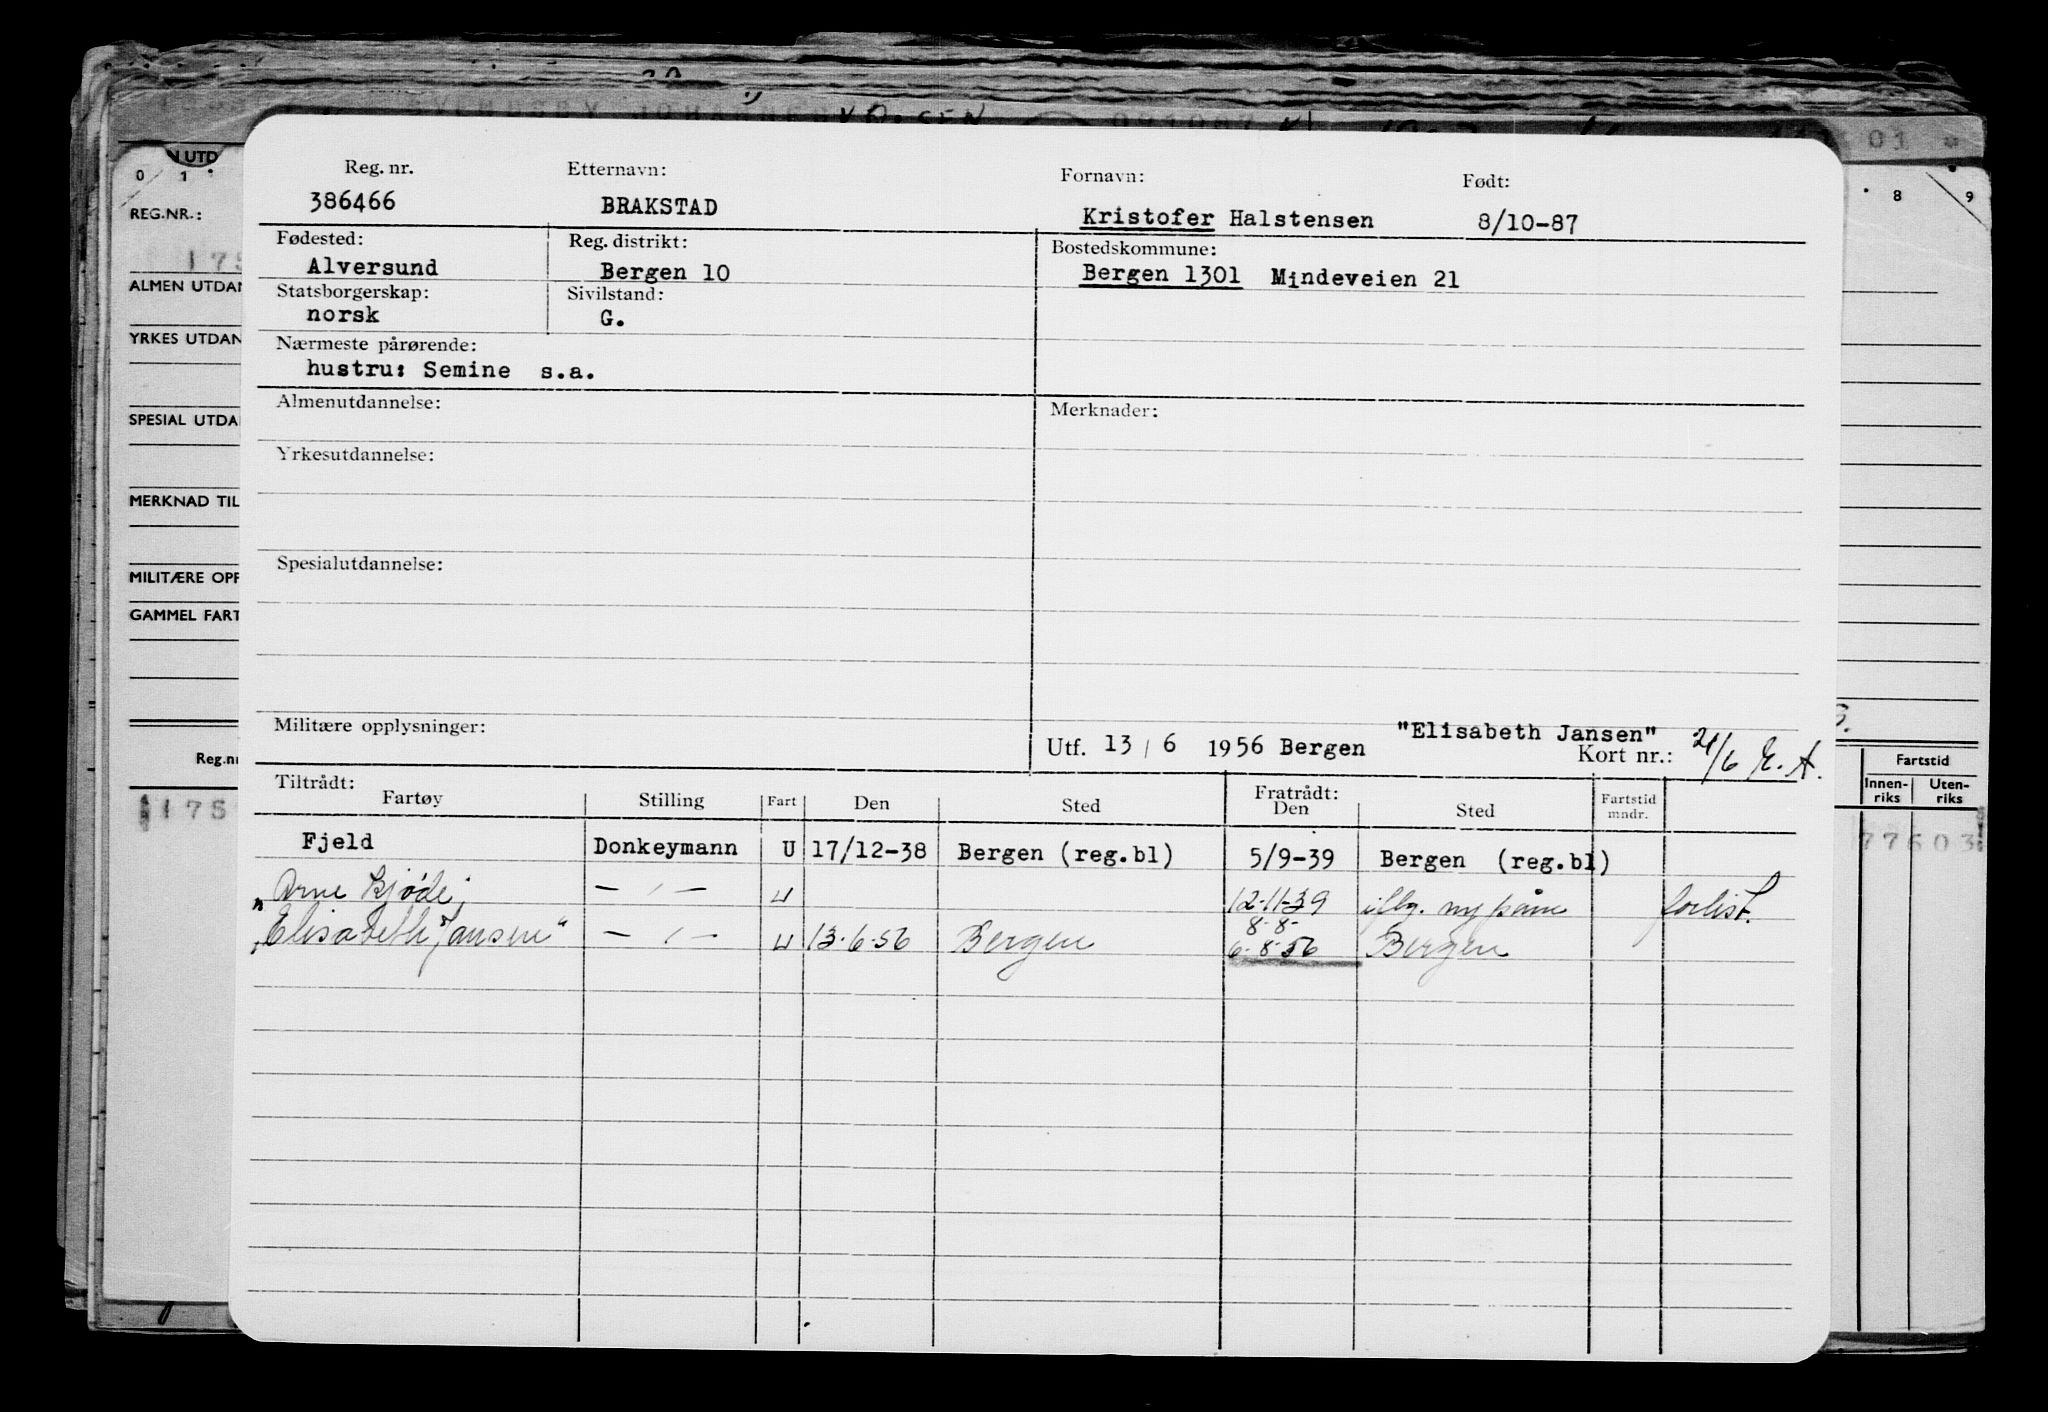 SVENDSBY JOHANNES
01
N UTD
0 1
8 9
REG.NR.:
175
ALMEN UTDAN
YRKES UTDAN
SPESIAL UTDA
MERKNAD TIL
MILITÆRE OPP
GAMMEL FART
Reg.nr
175
Fartstid
Innen-riks Uten-riks
77603
Reg. nr. Etternavn: Fornavn: Født:
386466 BRAKSTAD Kristofer Halstensen 8/10-87
Fødested: Reg. distrikt: Bostedskommune:
Alversund Bergen 10 Bergen 1301 Mindeveien 21
Statsborgerskap: Sivilstand:
norsk G.
Nærmeste pårørende:
hustru: Semine s.a.
Almenutdannelse: Merknader:
Yrkesutdannelse:
Spesialutdannelse:
Militære opplysninger: "Elisabeth Jansen"
Utf. 13 / 6 1956 Bergen Kort nr.: 21/6 E. A.
Tiltrådt: Fratrådt:
Fartøy Stilling Fart Den Sted Den Sted Fartstid mndr.
Fjeld Donkeymann U 17/12-38 Bergen (reg.bl) 5/9-39 Bergen (reg.bl)
"Arne Kjøde" — " — U 12-11-39 forlist.
8-8-
"Elisabeth Jansen" — " — U 13-6-56 Bergen 6-8-56 Bergen